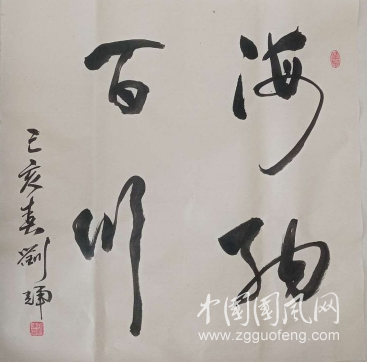 海纳
百川
己亥春劉輝
中国国风网
www.zgguofeng.com